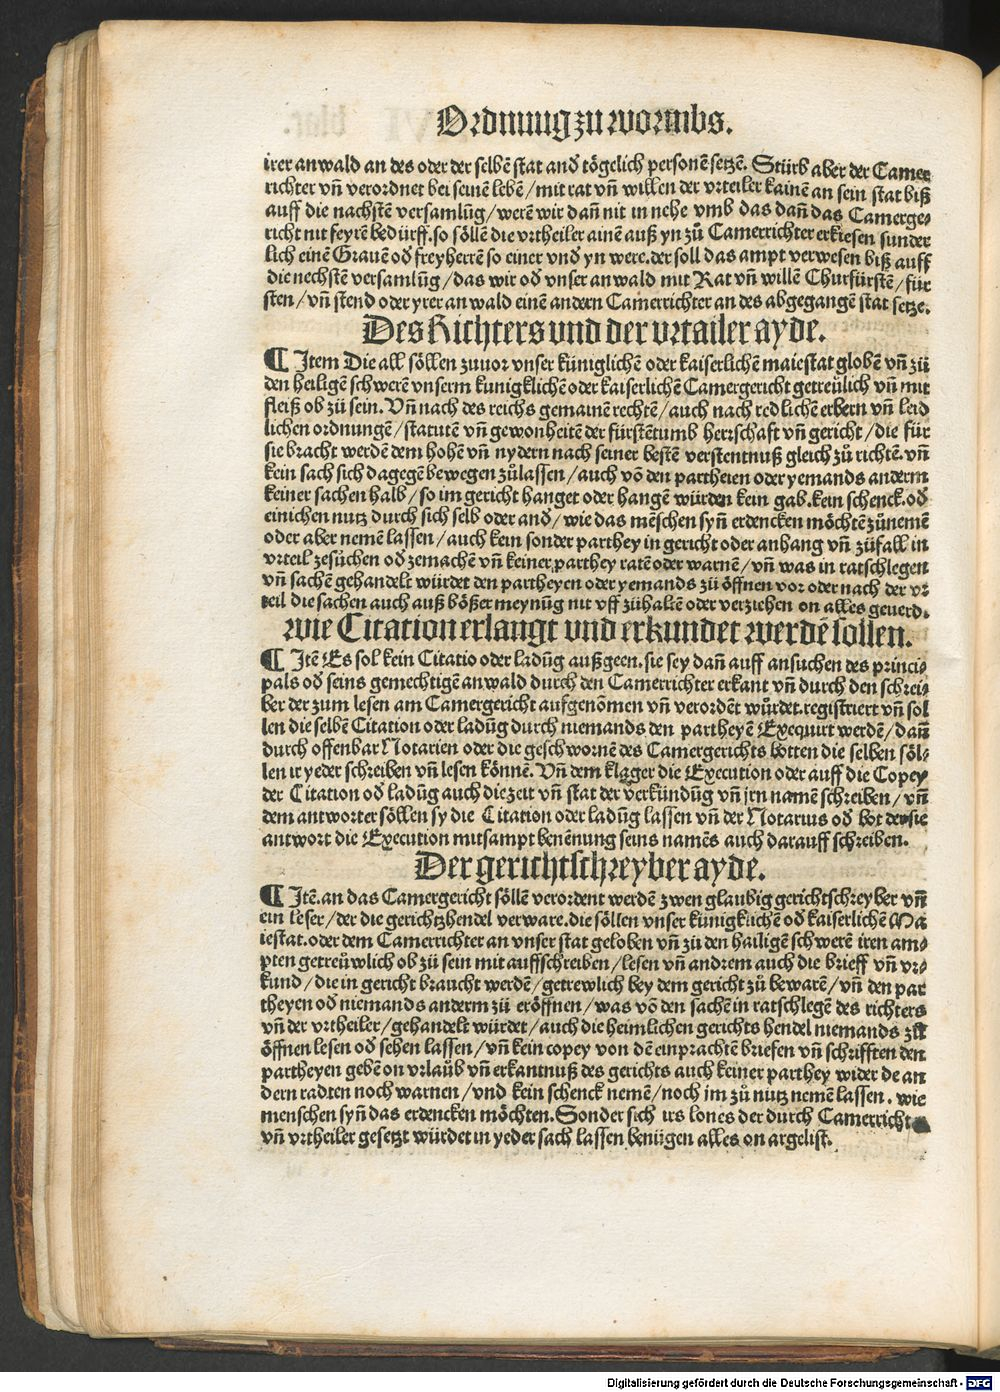 Ordnung zu wormbs.
irer anwald an des oder der selbē stat and tögelich personē setzē. Stürb aber der Camer
richter vñ verordnet bei seinē lebē/mit rat vñ willen der vrteiler kainē an sein stat biß
auff die nachstē versamlūg/werē wir dañ nit in nehe vmb das dañ das Camerge⸗
richt nit feyrē bedürff.so söllē die vrtheiler ainē auß yn zů Camerrichter erkiesen sunder
lich einē Grauē oð freyherrē so einer vnd yn were.der soll das ampt verwesen biß auff
die nechstē versamlūg/das wir oð vnser anwald mit Rat vñ willē Churfürstē/für
sten/vñ stend oder yrer anwald einē andern Camerrichter an des abgegangē stat setze.
Des Richters vnd der vrtailer ayde.
¶ Item Die all söllen zuuor vnser küniglichē oder kaiserlichē maiestat globē vñ zü
den heiligē schwerē vnserm kunigklichē oder kaiserlichē Camergericht getreülich vñ mit
fleiß ob zü sein. Vñ nach des reichs gemainē rechtē/auch nach redlichē erbern vñ leid
lichen ordnungē/statutē vñ gewonheitē der fürstētumb herrschaft vñ gericht/die für
sie bracht werdē dem hohē vñ nydern nach seiner bestē verstentnuß gleich zů richtē.vñ
kein sach sich dagegē bewegen zůlassen/auch vō den partheien oder yemands anderm
keiner sachen halb/so im gericht hanget oder hangē würden kein gab.kein schenck.oð
einichen nutz durch sich selb oder and/wie das mēschen syñ erdencken möchtē zůnemē
oder aber nemē lassen/auch kein sonder parthey in gericht oder anhang vñ züfall in
vrteil zesüchen oð zemachē vñ keiner parthey ratē oder warnē/vñ was in ratschlegen
vñ sachē gehandelt würdet den partheyen oder yemands zü öffnen vor oder nach der vr⸗
teil die sachen auch auß bößer meynūg nit vff zühaltē oder verziehen on alles geuerd.
wie Citation erlangt vnd erkundet werdē sollen.
¶ Itē Es sol kein Citatio oder ladūg außgeen.sie sey dañ auff ansuchen des princi⸗
pals oð seins gemechtigē anwald durch den Camerrichter erkant vñ durch den schrei⸗
ber der zum lesen am Camergericht aufgenomen vñ verordēt würdet.registriert vñ sol
len die selbē Citation oder ladūg durch niemands den partheyē Exequirt werdē/dañ
durch offenbar Notarien oder die geschwornē des Camergerichts botten die selben söl⸗
len ir yeder schreiben vñ lesen könnē. Vñ dem klager die Execution oder auff die Copey
der Citation oð ladūg auch die zeit vñ stat der verkündūg vñ jrn namē schreiben/vñ
dem antworter söllen sy die Citation oder ladūg lassen vñ der Notarius oð bot der sie
antwort die Execution mitsampt benēnung seins namēs auch darauff schreiben.
Der gerichtschreyber ayde.
¶ Itē.an das Camergericht söllē verordent werdē zwen glaubig gerichtschreyber vñ
ein leser/der die gerichtzhendel verware.die söllen vnser künigklichē oð kaiserlichē Ma
iestat.oder dem Camerrichter an vnser stat geloben vñ zü den hailigē schwerē iren am⸗
pten getreüwlich ob zü sein mit auffschreiben/lesen vñ andrem auch die brieff vñ vr⸗
kund/die in gericht braucht werdē/getrewlich bey dem gericht zů bewarē/vñ den par
theyen oð niemands anderm zü eröffnen/was vō den sachē in ratschlegē des richters
vñ der vrtheiler/gehandelt würdet/auch die heimlichen gerichts hendel niemands zü
öffnen lesen oð sehen lassen/vñ kein copey von dē einprachtē briefen vñ schrifften den
partheyen gebē on vrlaüb vñ erkantnuß des gerichts auch keiner parthey wider de an
dern radten noch warnen/vnd kein schenck nemē/noch im zů nutz nemē lassen. wie
menschen syñ das erdencken möchten.Sonder sich irs lones der durch Camerricht
vñ vrtheiler gesetzt würdet in yeder sach lassen benügen alles on argelist.
Digitalisierung gefördert durch die Deutsche Forschungsgemeinschaft - DFG